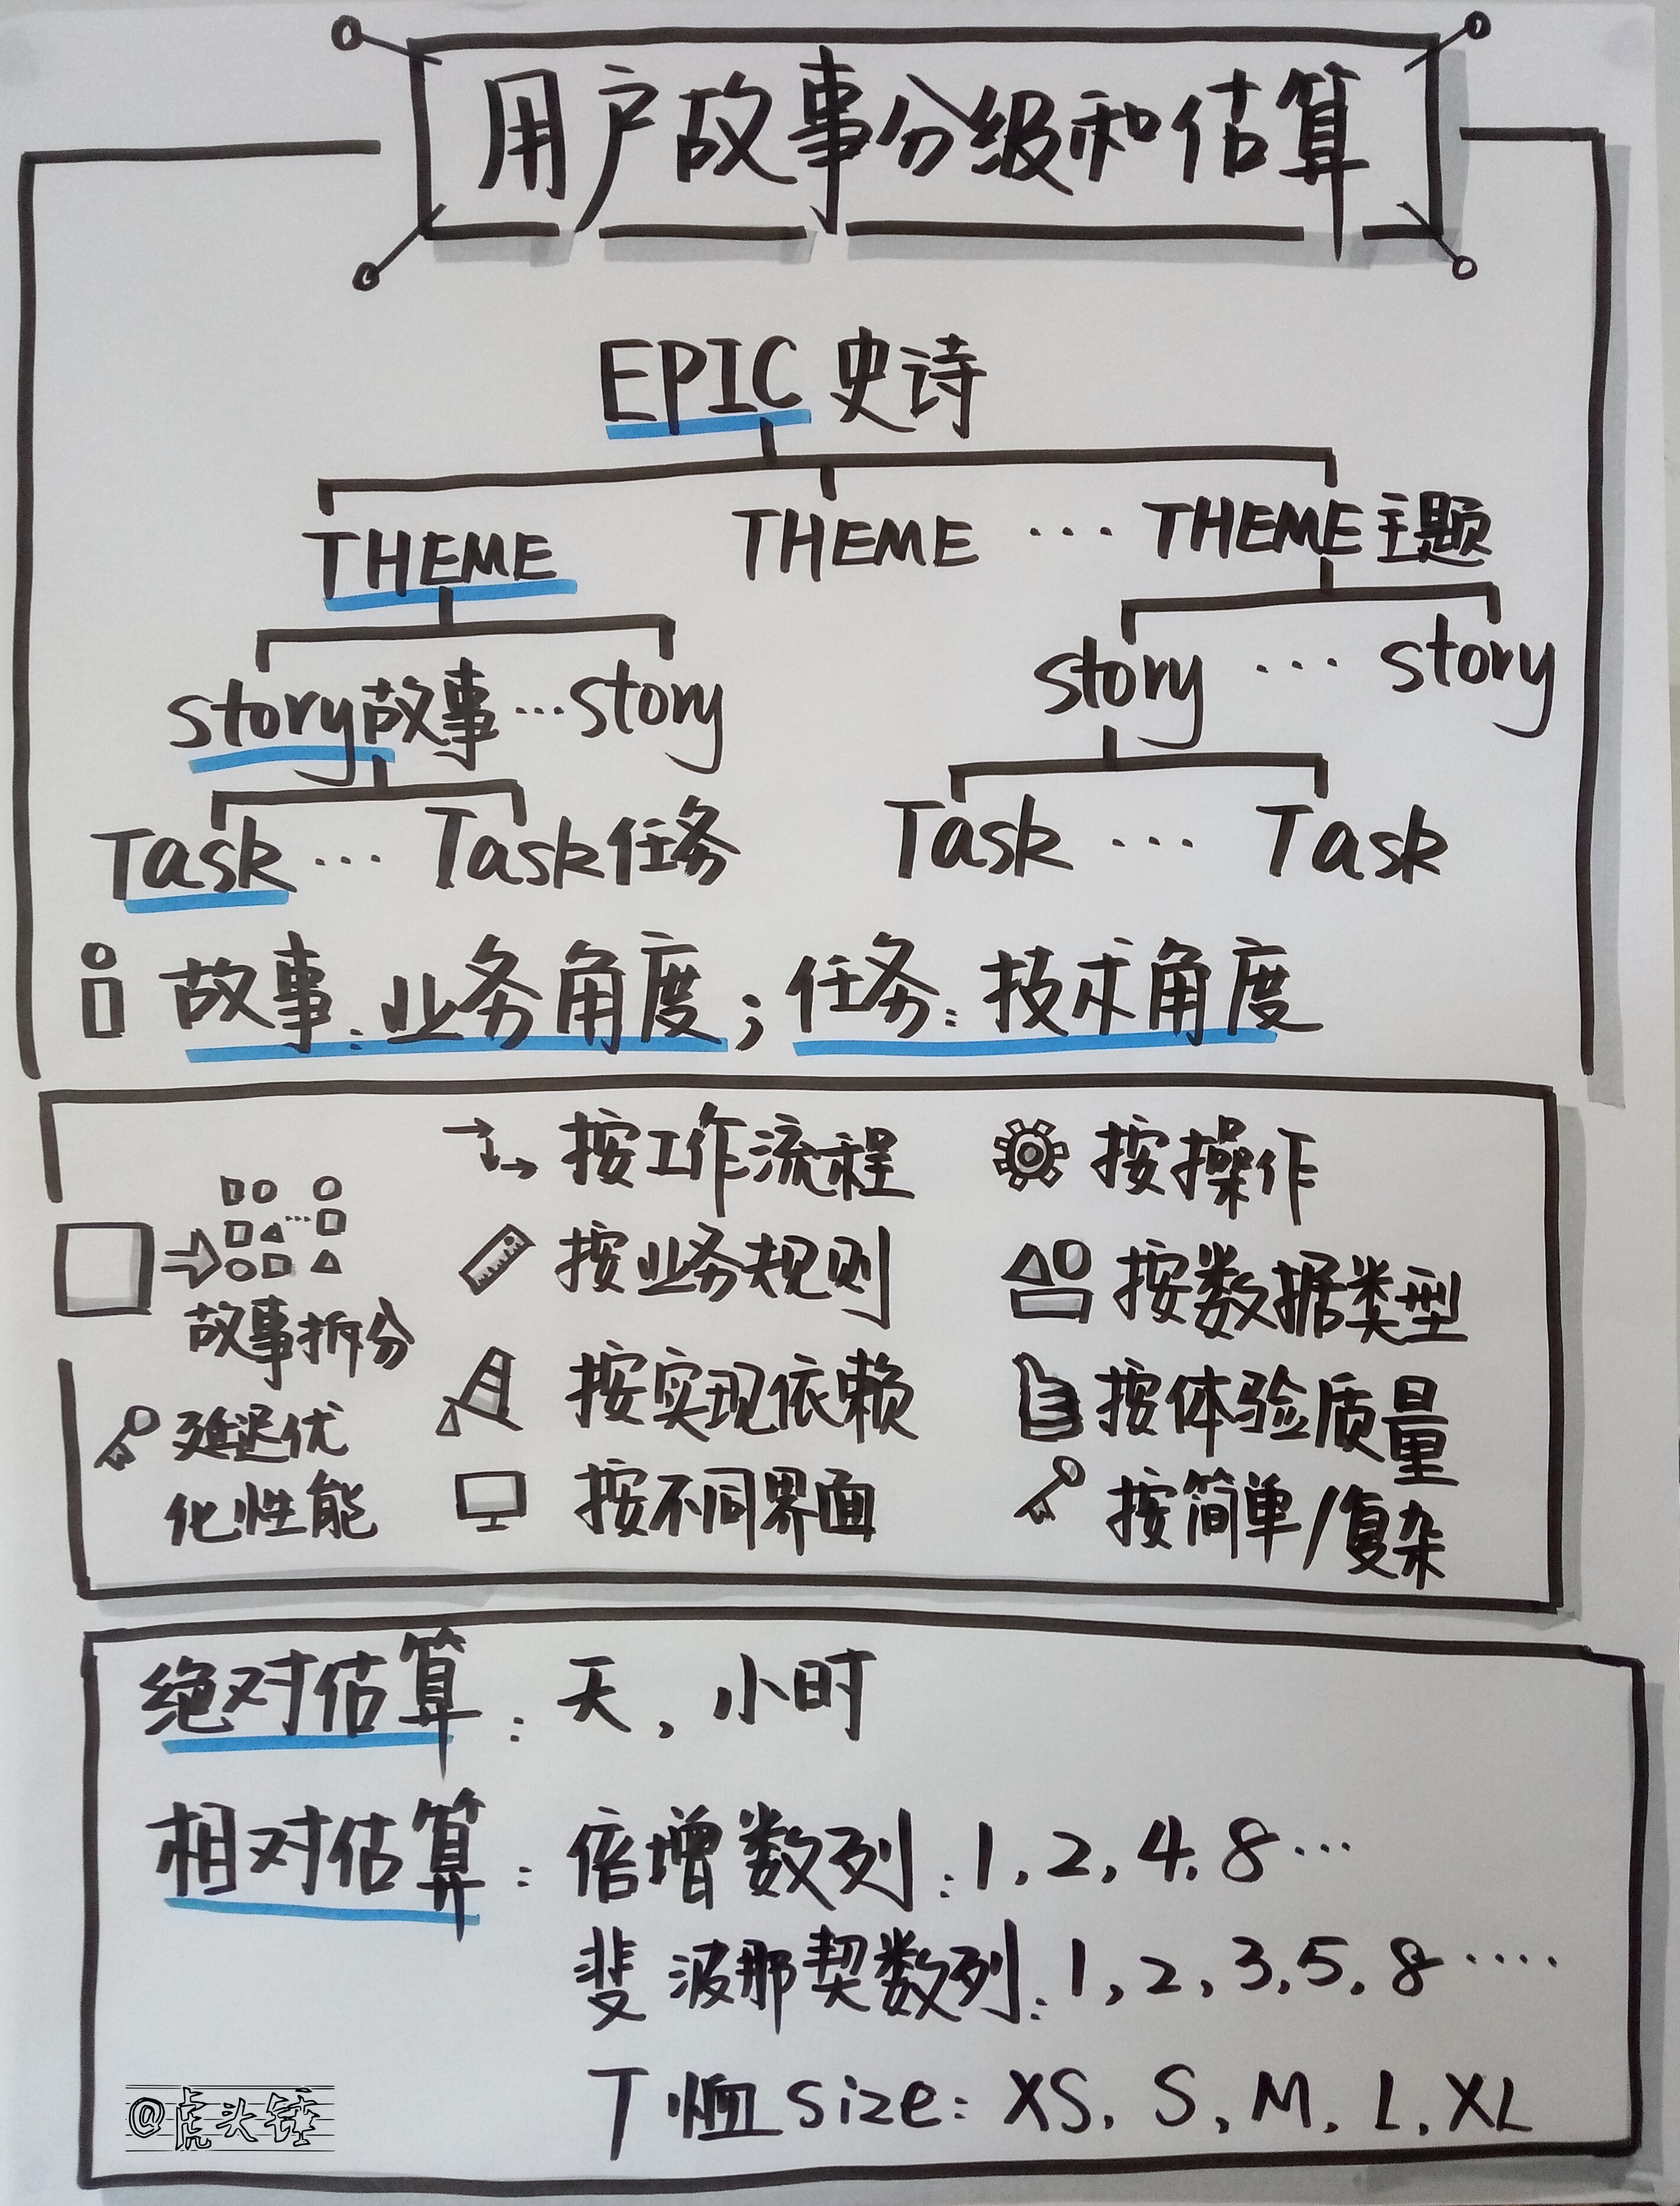 用户故事分级和估算
EPIC 史诗
THEME THEME ... THEME 主题
story故事...story story ... story
Task ... Task任务 Task ... Task
故事:业务角度;任务:技术角度
按工作流程 按操作
按业务规则 按数据类型
故事拆分
按实现依赖 按体验质量
延迟优
化性能
按不同界面 按简单/复杂
绝对估算:天,小时
相对估算:倍增数列:1,2,4,8...
斐波那契数列:1,2,3,5,8.....
T恤size:XS,S,M,L,XL
@虎头锤